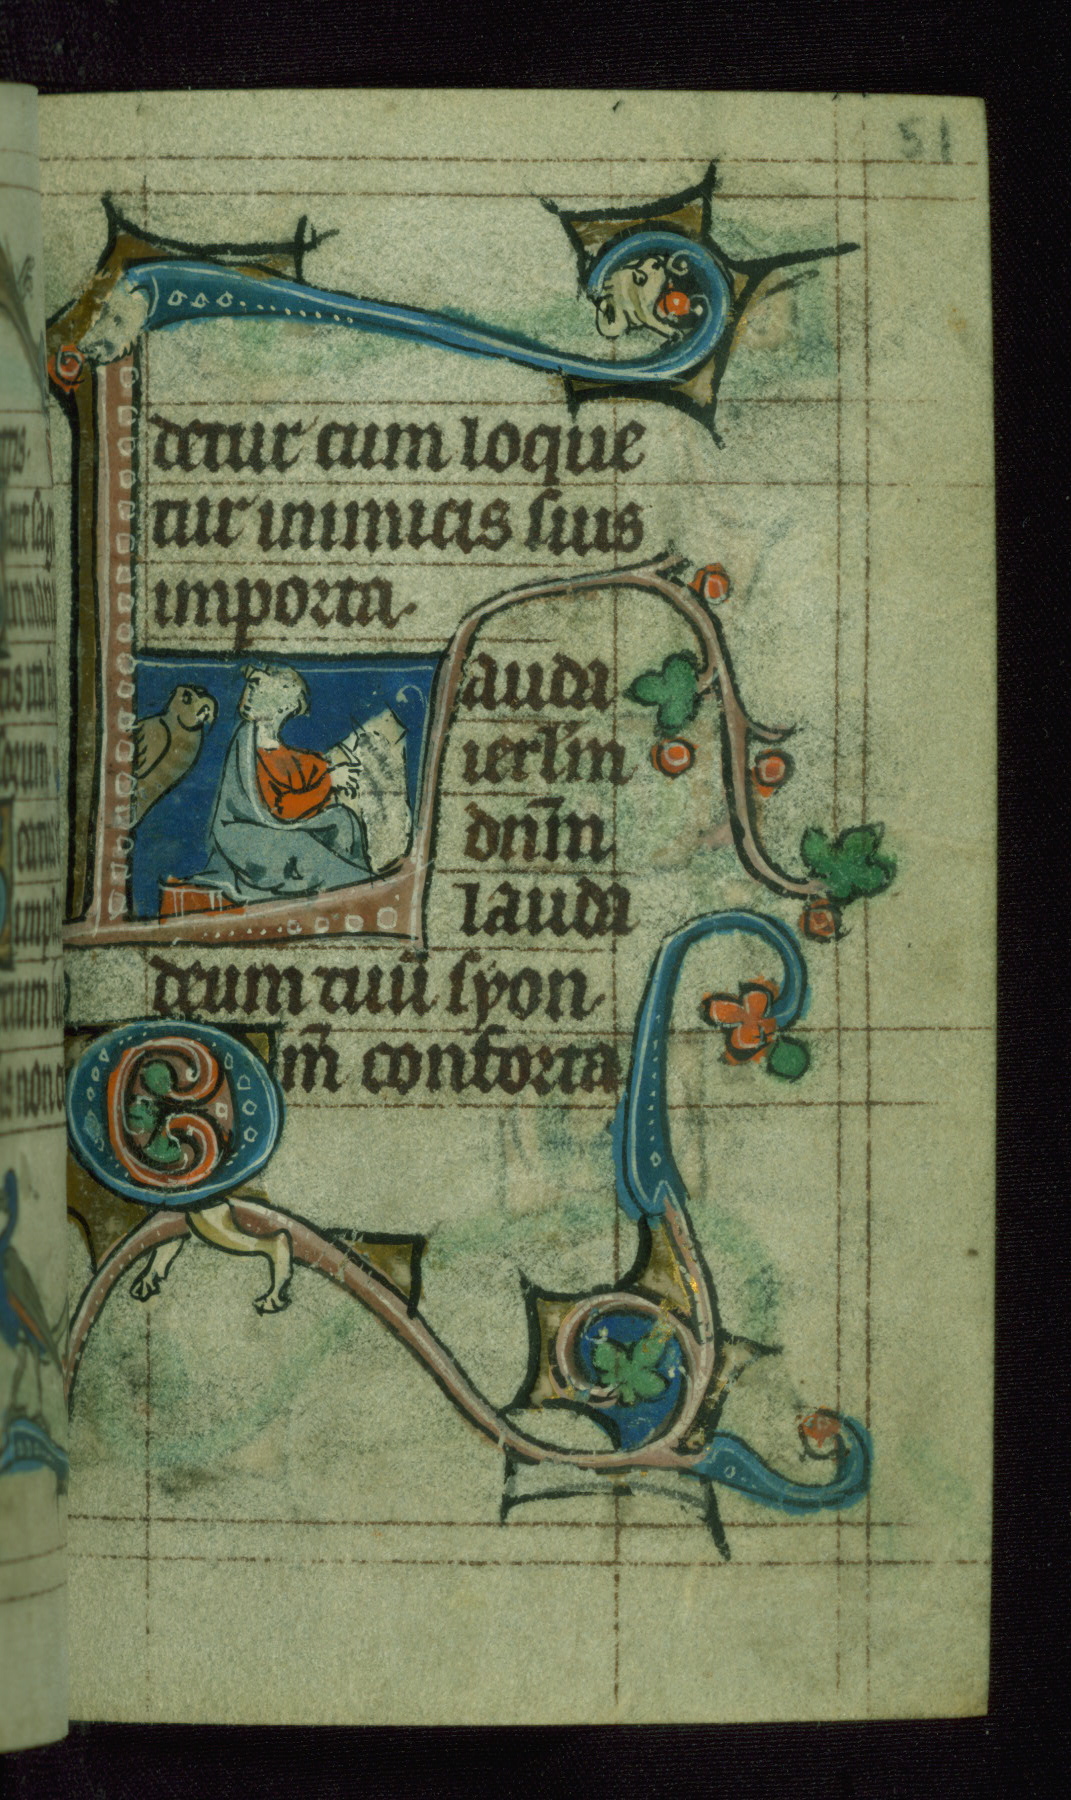 51
detur cum loque
tur inimicis suis
in porta.
Lauda
ierl'm
dn̄m
lauda
deum tuū syon.
Qm̄ conforta